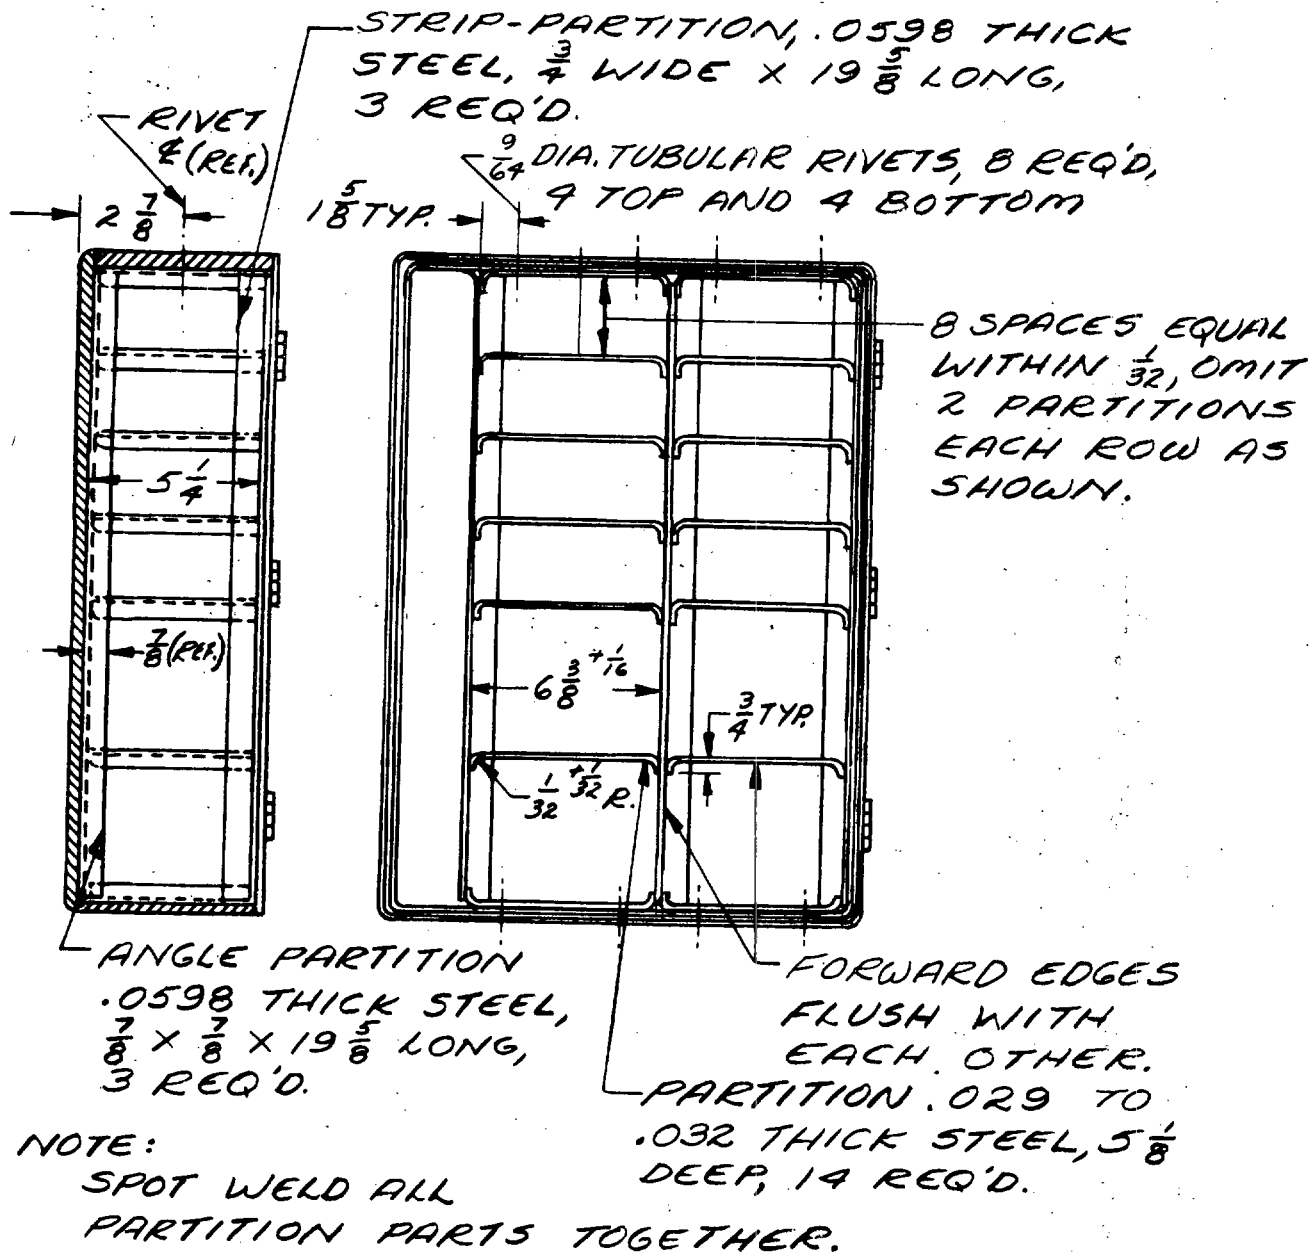 STRIP-PARTITION, .0598 THICK
STEEL, 3/4 WIDE X 19 5/8 LONG,
3 REQ'D.
RIVET
℄ (REF.)
9/64 DIA. TUBULAR RIVETS, 8 REQ'D,
4 TOP AND 4 BOTTOM
2 7/8
1 5/8 TYP.
8 SPACES EQUAL
WITHIN 1/32, OMIT
2 PARTITIONS
EACH ROW AS
SHOWN.
5 1/4
7/8 (REF.)
6 3/8 +1/16
3/4 TYP.
1/32 +1/32 R.
ANGLE PARTITION
.0598 THICK STEEL,
7/8 X 7/8 X 19 5/8 LONG,
3 REQ'D.
FORWARD EDGES
FLUSH WITH
EACH OTHER.
PARTITION .029 TO
.032 THICK STEEL, 5 1/8
DEEP, 14 REQ'D.
NOTE:
SPOT WELD ALL
PARTITION PARTS TOGETHER.